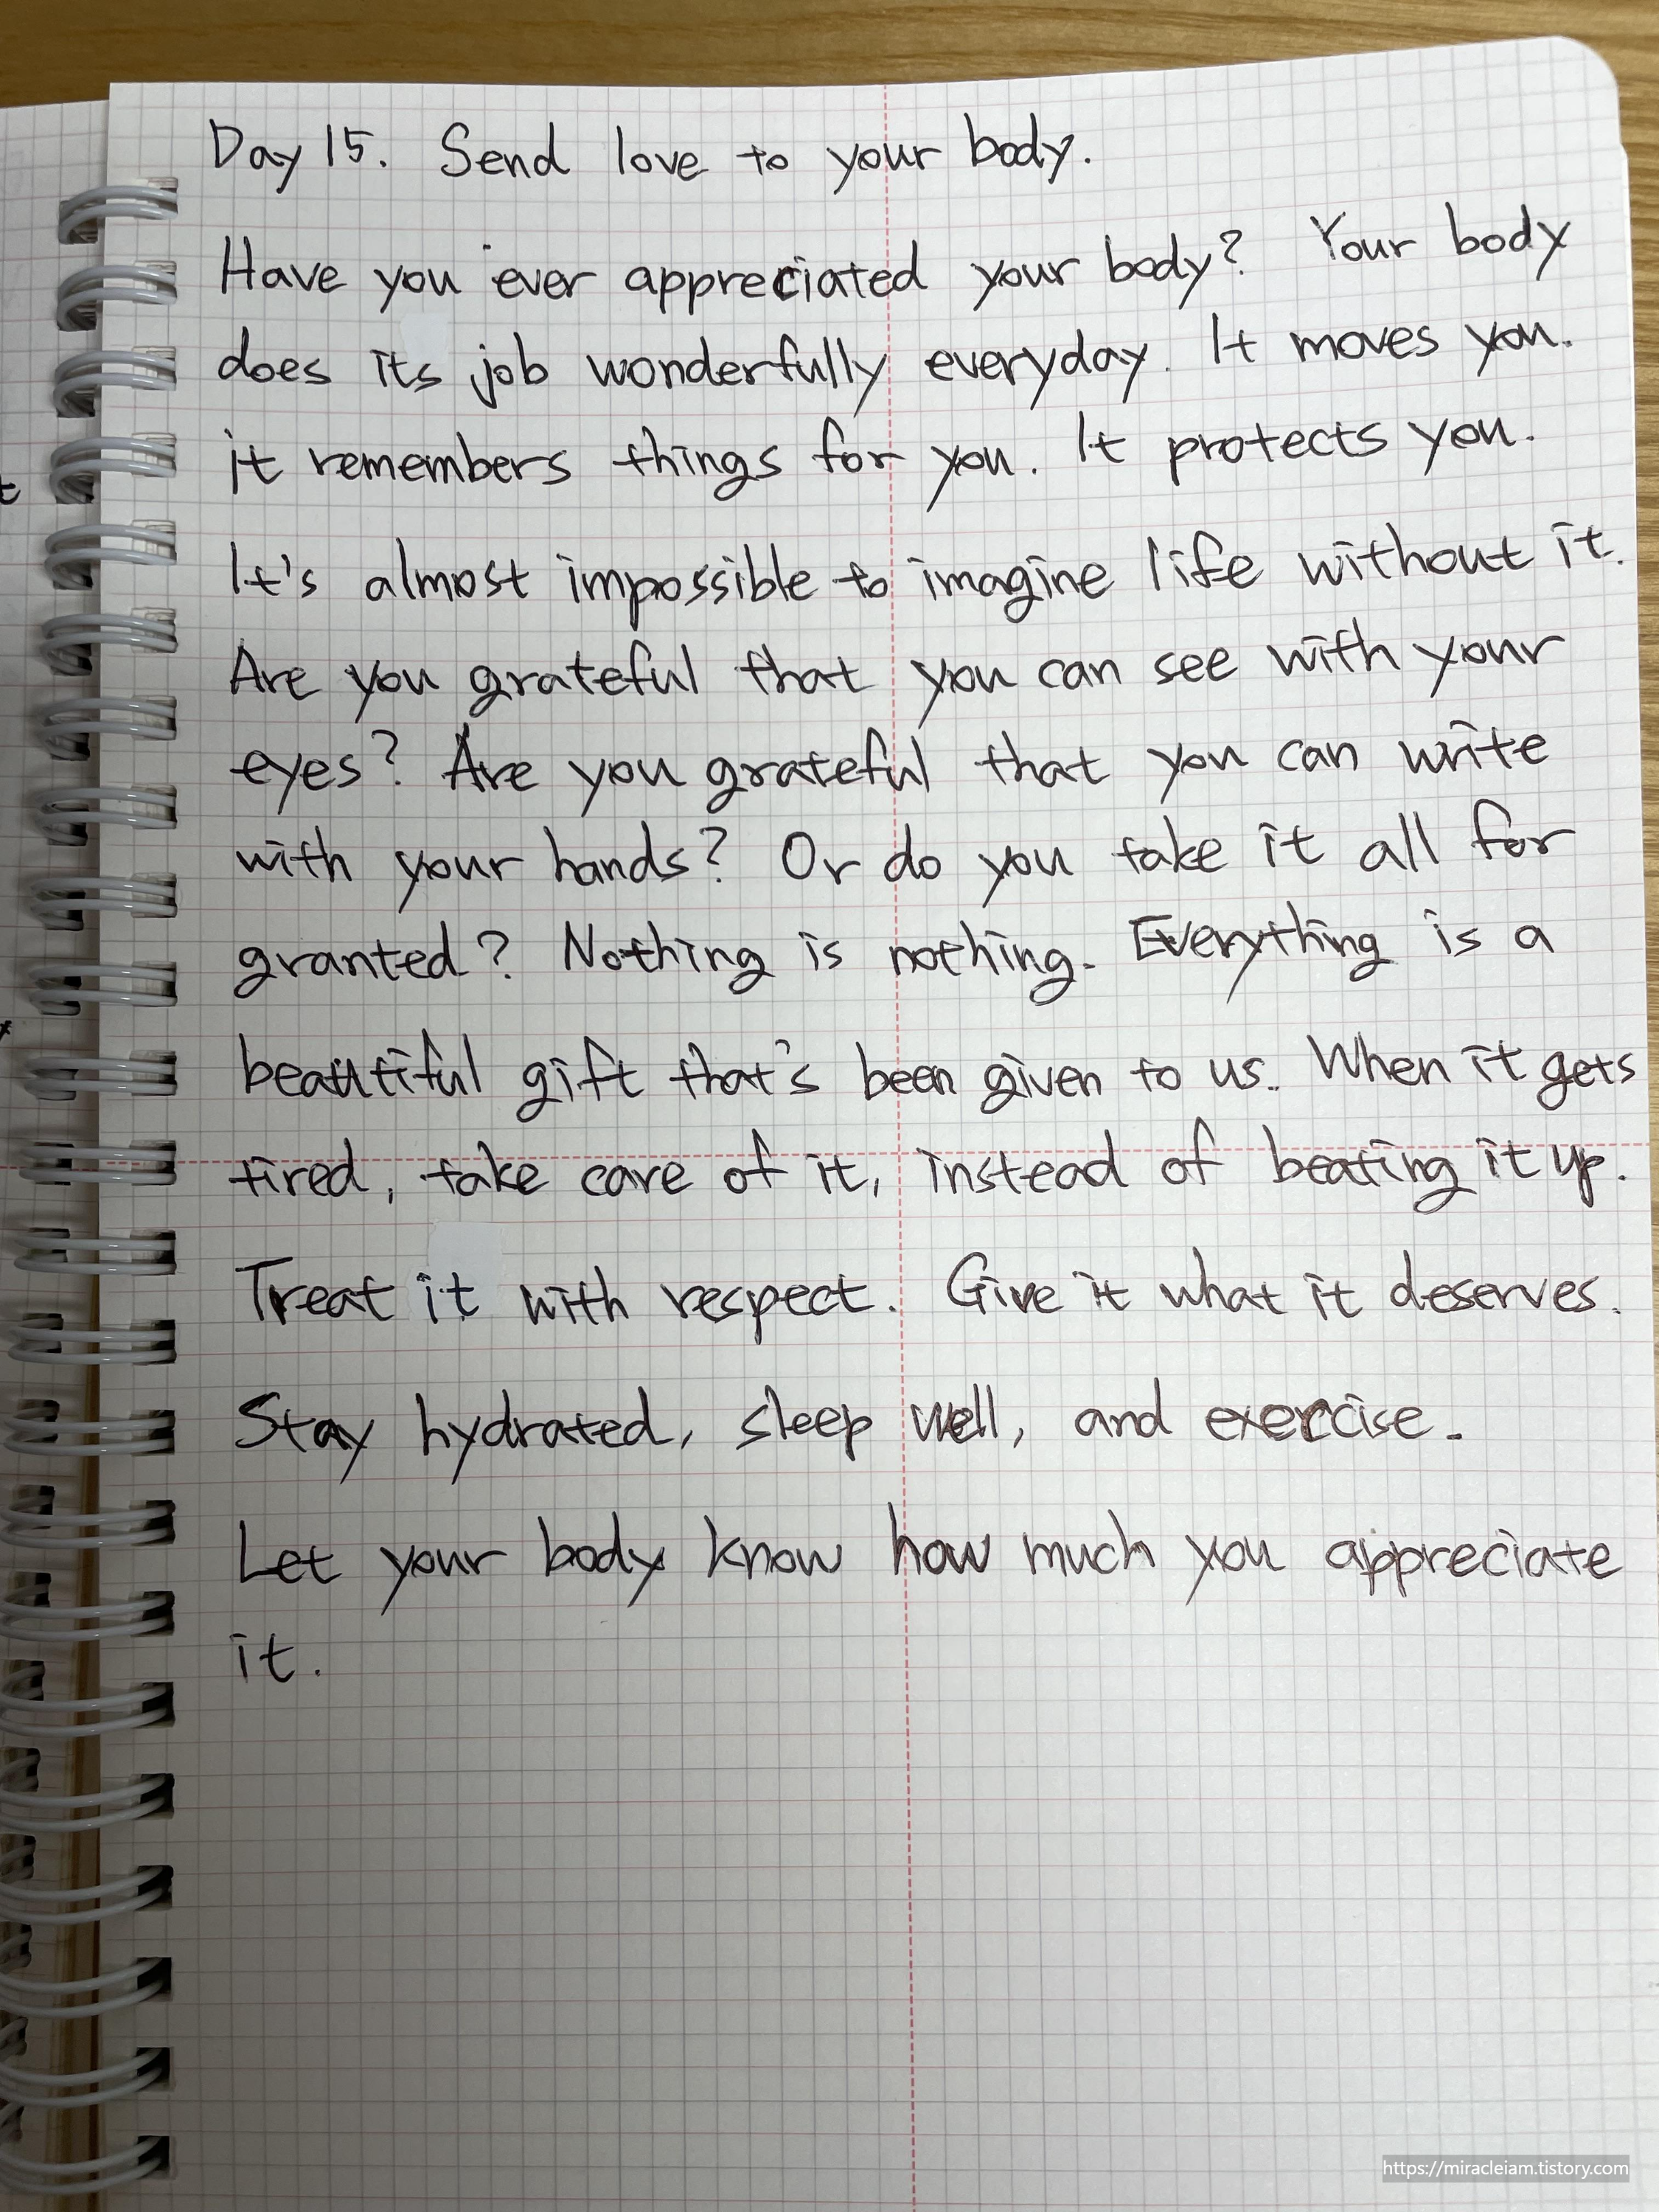 Day 15. Send love to your body.
Have you ever appreciated your body? Your body
does its job wonderfully everyday. It moves you.
it remembers things for you. It protects you.
It's almost impossible to imagine life without it.
Are you grateful that you can see with your
eyes? Are you grateful that you can write
with your hands? Or do you take it all for
granted? Nothing is nothing. Everything is a
beautiful gift that's been given to us. When it gets
tired, take care of it, instead of beating it up.
Treat it with respect. Give it what it deserves.
Stay hydrated, sleep well, and exercise.
Let your body know how much you appreciate
it.
https://miracleiam.tistory.com